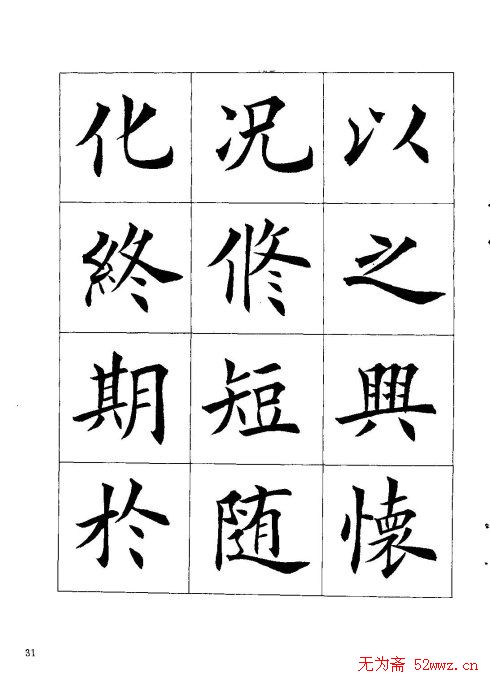 以之興懷
况修短随
化終期於
31
无为斋 52wwz.cn